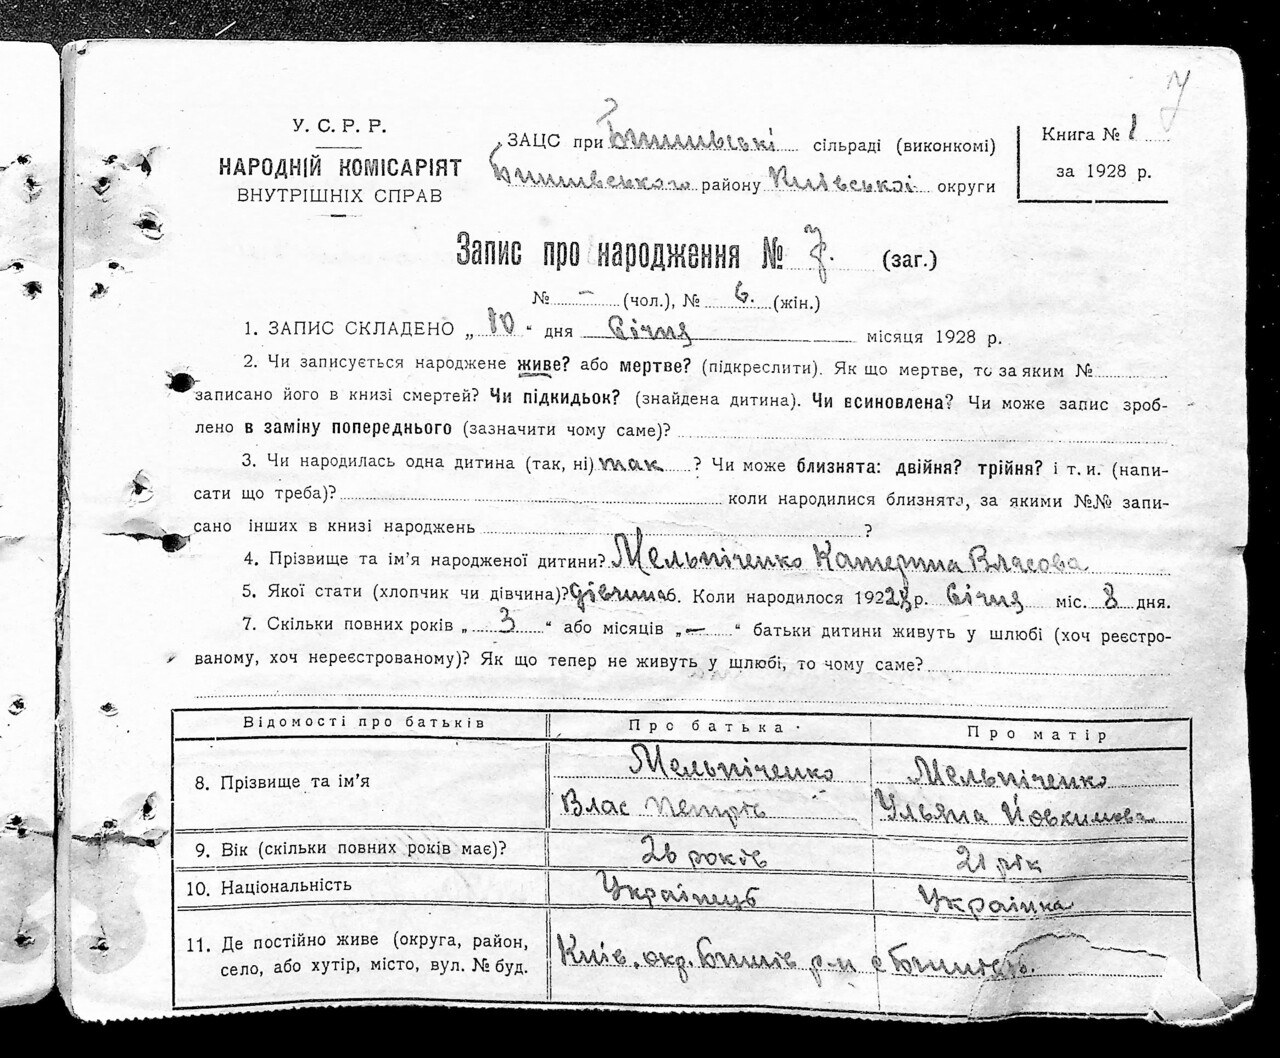 7
У. С. Р. Р.
НАРОДНІЙ КОМІСАРІЯТ
ВНУТРІШНІХ СПРАВ
ЗАЦС при Бишівські сільраді (виконкомі)
Бишівського району Київської округи
Книга № 1
за 1928 р.
Запис про народження № 7. (заг.)
№ – (чол.), № 6. (жін.)
1. ЗАПИС СКЛАДЕНО „ 10 “ дня Січня місяця 1928 р.
2. Чи записується народжене живе? або мертве? (підкреслити). Як що мертве, то за яким №
записано його в книзі смертей? Чи підкидьок? (знайдена дитина). Чи всиновлена? Чи може запис зроб-
лено в заміну попереднього (зазначити чому саме)?
3. Чи народилась одна дитина (так, ні) так ? Чи може близнята: двійня? трійня? і т. и. (напи-
сати що треба)? коли народилися близнята, за якими №№ запи-
сано інших в книзі народжень ?
4. Прізвище та ім’я народженої дитини? Мельніченко Катерина Власова
5. Якої стати (хлопчик чи дівчина)? дівчина 6. Коли народилося 1928 р. Січня міс. 8 дня.
7. Скільки повних років „ 3 “ або місяців „ – “ батьки дитини живуть у шлюбі (хоч реєстро-
ваному, хоч нереєстрованому)? Як що тепер не живуть у шлюбі, то чому саме?
Відомості про батьків Про батька Про матір
8. Прізвище та ім’я
Мельніченко Мельніченко
Влас Петрів Ульяна Йовхимова
9. Вік (скільки повних років має)? 26 років 21 рік
10. Національність Українець Українка
11. Де постійно живе (округа, район,
село, або хутір, місто, вул. № буд.
Київ. окр. Бишів р-н с Бишів